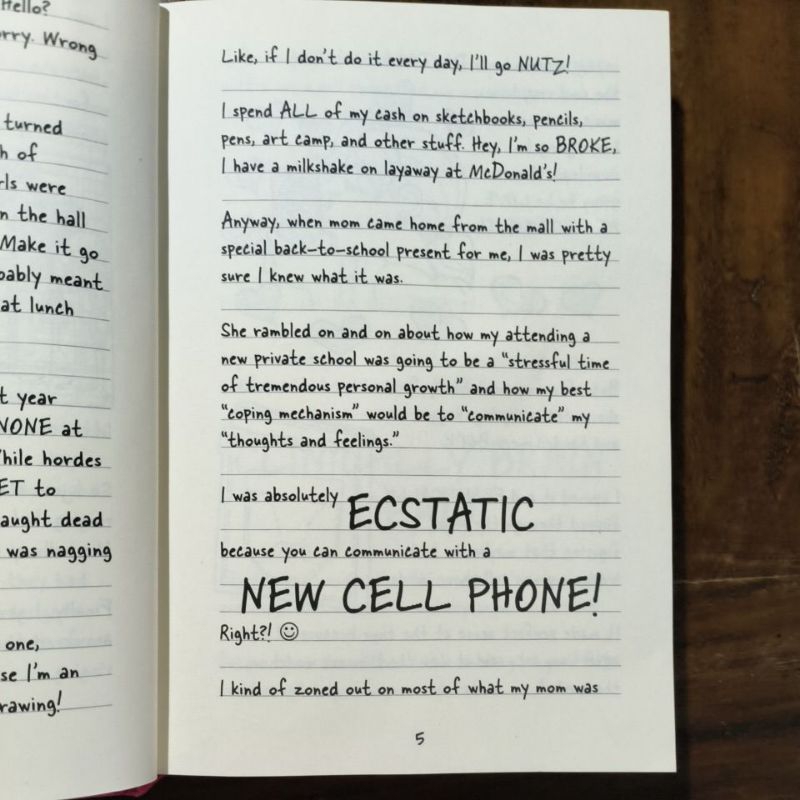 Hello?
Wrong
turned
of
were
the hall
Make it go
meant
at lunch
year
NONE at
hordes
to
dead
was nagging
one,
I'm an
Like, if I don't do it every day, I'll go NUTZ!
I spend ALL of my cash on sketchbooks, pencils,
pens, art camp, and other stuff. Hey, I'm so BROKE,
I have a milkshake on layaway at McDonald's!
Anyway, when mom came home from the mall with a
special back-to-school present for me, I was pretty
sure I knew what it was.
She rambled on and on about how my attending a
new private school was going to be a "stressful time
of tremendous personal growth" and how my best
"coping mechanism" would be to "communicate" my
"thoughts and feelings."
I was absolutely ECSTATIC
because you can communicate with a
NEW CELL PHONE!
Right?! ☺
I kind of zoned out on most of what my mom was
5